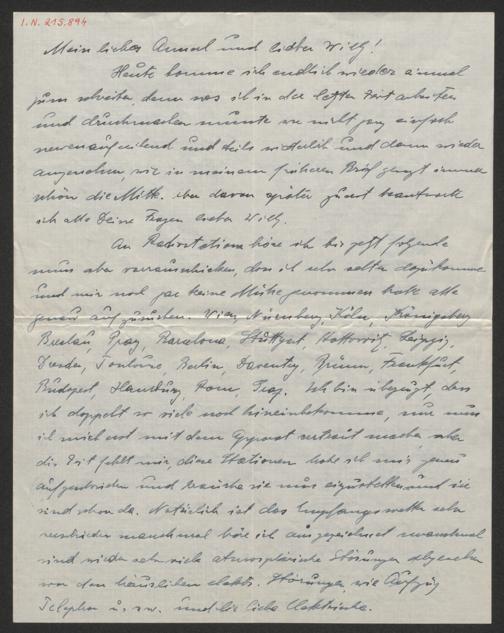 I.N. 215.894
Mein lieber Annerl und lieber Willy!
Heute komme ich endlich wieder einmal
zum schreiben, denn was ich in der letzten Zeit arbeiten
und durchmachen musste war nicht ganz einfach
nervenaufreibend und teils und dann wieder
angenehm, wie in meinem früheren Brief immer
schon die Mitte. aber davon später zuerst beantworte
ich alle Deine Fragen lieber Willy.
An Radiostationen höre ich bis jetzt folgende
muss aber vorausschicken, dass ich sehr selten dazukomme
und mir noch gar keine Mühe genommen habe alle
genau aufzusuchen. Wien, Nürnberg, Köln, Königsberg
Breslau, Prag, Barcelona, Stuttgart, Kattowitz, Leipzig,
Dresden, Toulouse, Berlin, Daventry, Brünn, Frankfurt,
Budapest, Hamburg, Rom, Prag. Ich bin überzeugt dass
ich doppelt so viele noch hineinbekomme, nur muss
ich mich erst mit dem Apparat vertraut machen aber
die Zeit fehlt mir, diese Stationen habe ich mir genau
aufgeschrieben und brauche sie nur einzustellen und sie
sind schon da. Natürlich ist das Empfangswetter sehr
verschieden manchmal höre ich ausgezeichnet manchmal
sind wieder sehr viele atmosphärische Störungen abgesehen
von den häuslichen elektr. Störungen, wie Aufzug
Telephon u. s. w. und die liebe Elektrische.